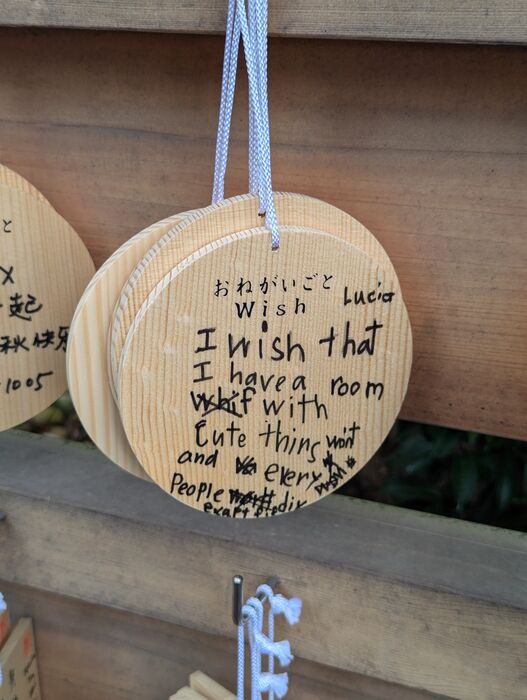 おねがいごと
Wish
Lucia
I wish that
I have a room
with
Cute thing
and every
People
と
起
秋快乐
1005